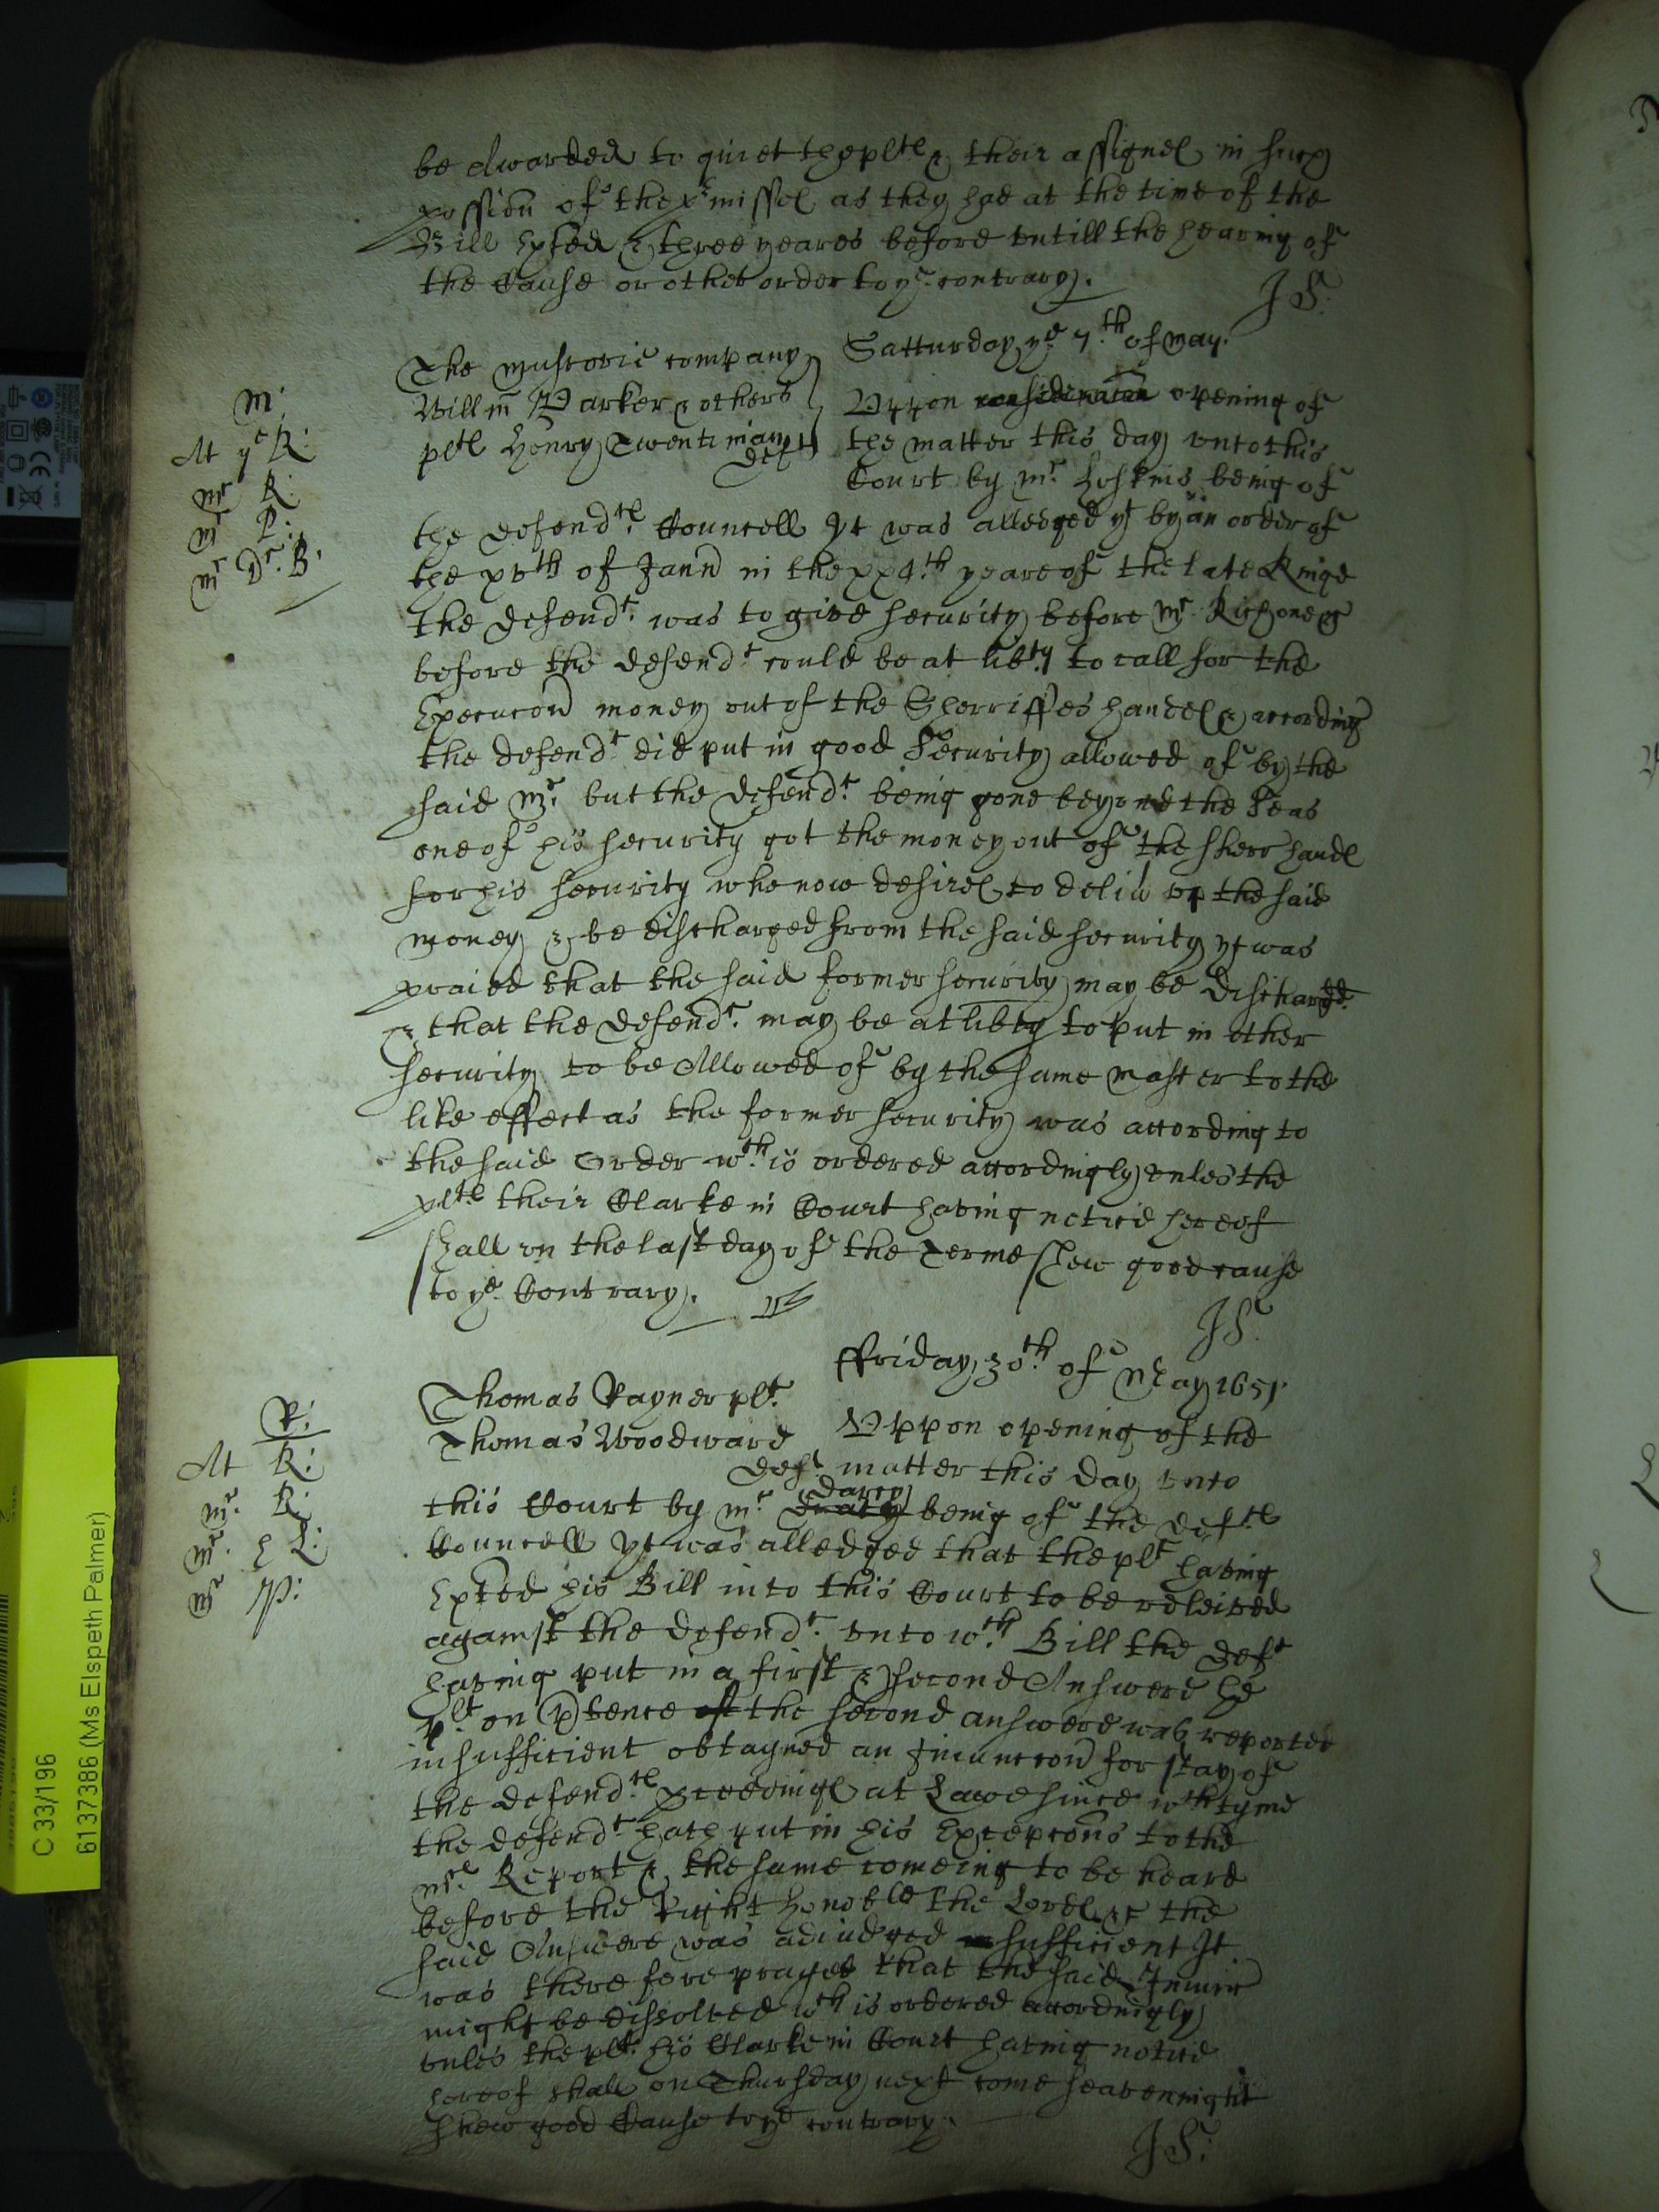 be Awarded to quiet the plts & their assignes in such
possion of the prmisses as they had at the time of the
Bill Exhted & three yeares before untill the hearing of
the Cause or other order to ye contrary.
JS:
Satturday ye 7th of May.
The Muscovie company
Willm Parker & others
plts Henry Twentiman
deft
M:
At ye R:
Mr R:
Mr P:
Mr Dr. B:
Uppon consideracon opening of
the matter this day unto this
Court by Mr. Hoskins being of
the defendts Councell yt was alledged yt by an order of
the xvth of Jann in the xx4th yeare of the late Kinge
the defendt. was to give security before Mr
before the defendt could be at libty to call for the
Execucon money out of the Sherriffes handes & according
the defendt did put in good Security allowed of by the
said Mr. but the defendt. being gone beyond the Seas
one of his security got the money out of the Sherr hands
for his security who now desires to deliv up the said
money & be discharged from the said security yt was
praied that the said former security may be discharged
& that the defendt. may be at libty to put in other
security to be Allowed of by the same master to the
like effect as the former security was according to
the said Order wch is ordered accordingly unles the
plts their Clarke in Court having notice hereof
shall on the last day of the Terme shew good cause
to ye Contrary.
JS.
ffriday 30th of May 1651.
Thomas Rayner plt.
Thomas Woodward
deft
R:
At R:
Mr. R:
Mr. H L:
Mr P:
Uppon opening of the
matter this day unto
this Court by Mr. Darcy being of the defts
Councell yt was alledged that the plt having
Exhted his Bill into this Court to be releived
against the defendt. unto wch Bill the deft
having put in a first & second Answere the
plt. on ptence the second answere was reported
insufficient obtayned an Iniunccon for stay of
the defendts proceedings at Lawe since wch tyme
the defendt hath put in his Excepcons to the
Mrs Report & the same comeing to be heard
before the Right Honoble the Lords &c the
said Answere was adiudged sufficient It
was therefore prayed that the said Iniunc
might be dissolved wch is ordered accordingly
unles the plt. his Clarke in Court having notice
hereof shall on Thursday next come seavennight
shew good Cause to ye contrary.
JS:
C 33/196
6137386 (Ms Elspeth Palmer)